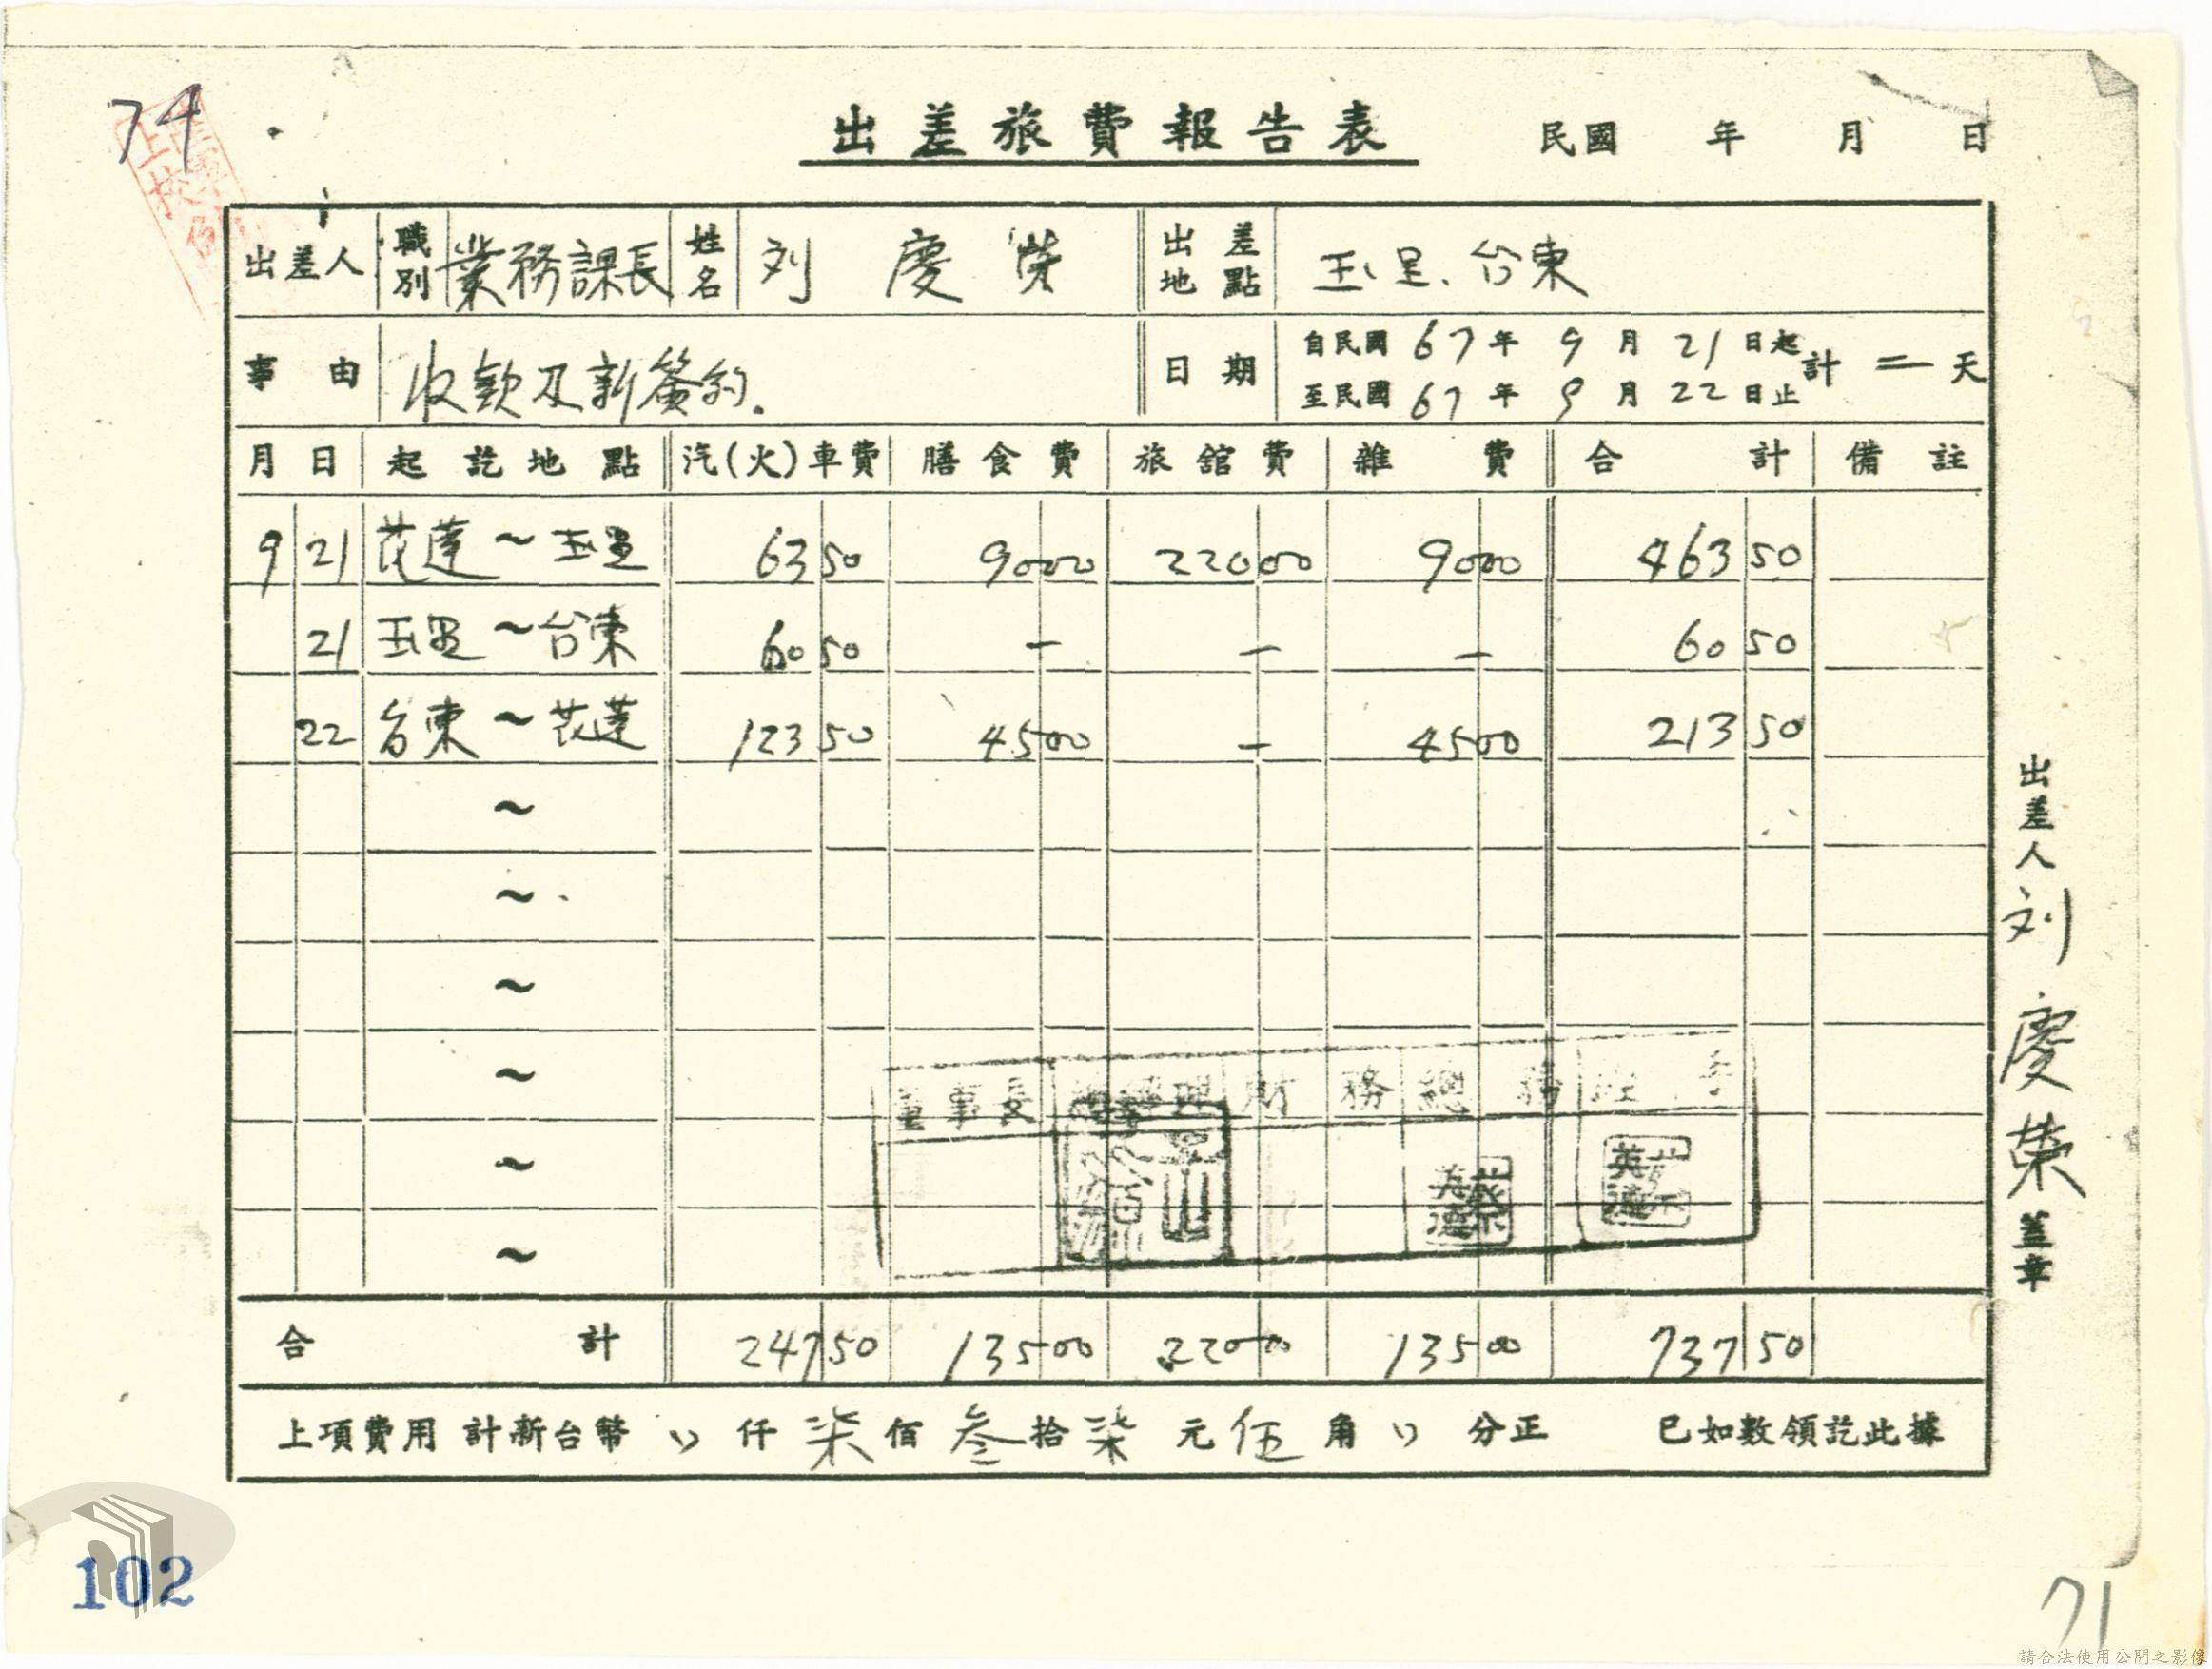 74
出差旅費報告表 民國 年 月 日
出差人 職別 業務課長 姓名 刘慶荣 出差地點 玉里、台東
事由 收款及新簽約. 日期 自民國67年9月21日起 計二天
至民國67年9月22日止
月 日 起訖地點 汽(火)車費 膳食費 旅舘費 雜費 合計 備註
9 21 花蓮～玉里 63 50 90 00 220 00 90 00 463 50
21 玉里～台東 60 50 － － － 60 50
22 台東～花蓮 123 50 45 00 － 45 00 213 50
～
～
～
～
～
～
董事長 總經理 財務 總務 經手
合計 247 50 135 00 220 00 135 00 737 50
上項費用計新台幣 〃仟柒佰叁拾柒元伍角〃分正 已如數領訖此據
出差人 刘慶荣 盖章
102
71
請合法使用公開之影像